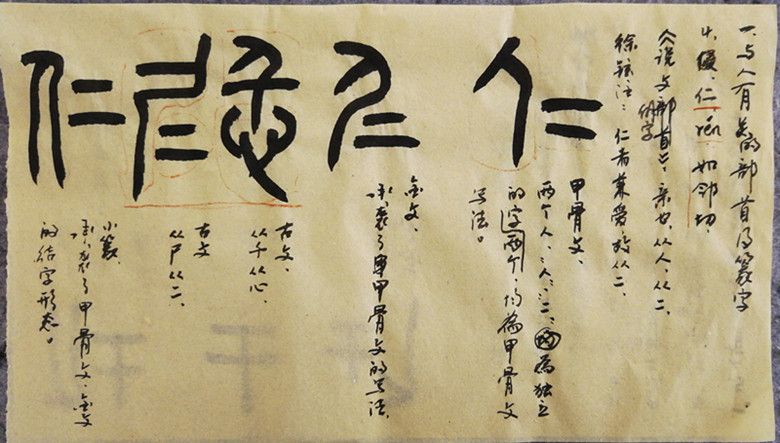 一、与人有关的部首及篆字
4、仁 如邻切、
《说文部首》：亲也、从人、从二、
例字
徐铉注：仁者兼爱、故从二、
仁
甲骨文、
两个人、二、为独立
的字、均为甲骨文
写法。
仁
金文、
承袭了甲骨文的写法、
古文、
从千从心、
古文
从尸从二、
仁
小篆、
承袭了甲骨文、金文
的结字形态。